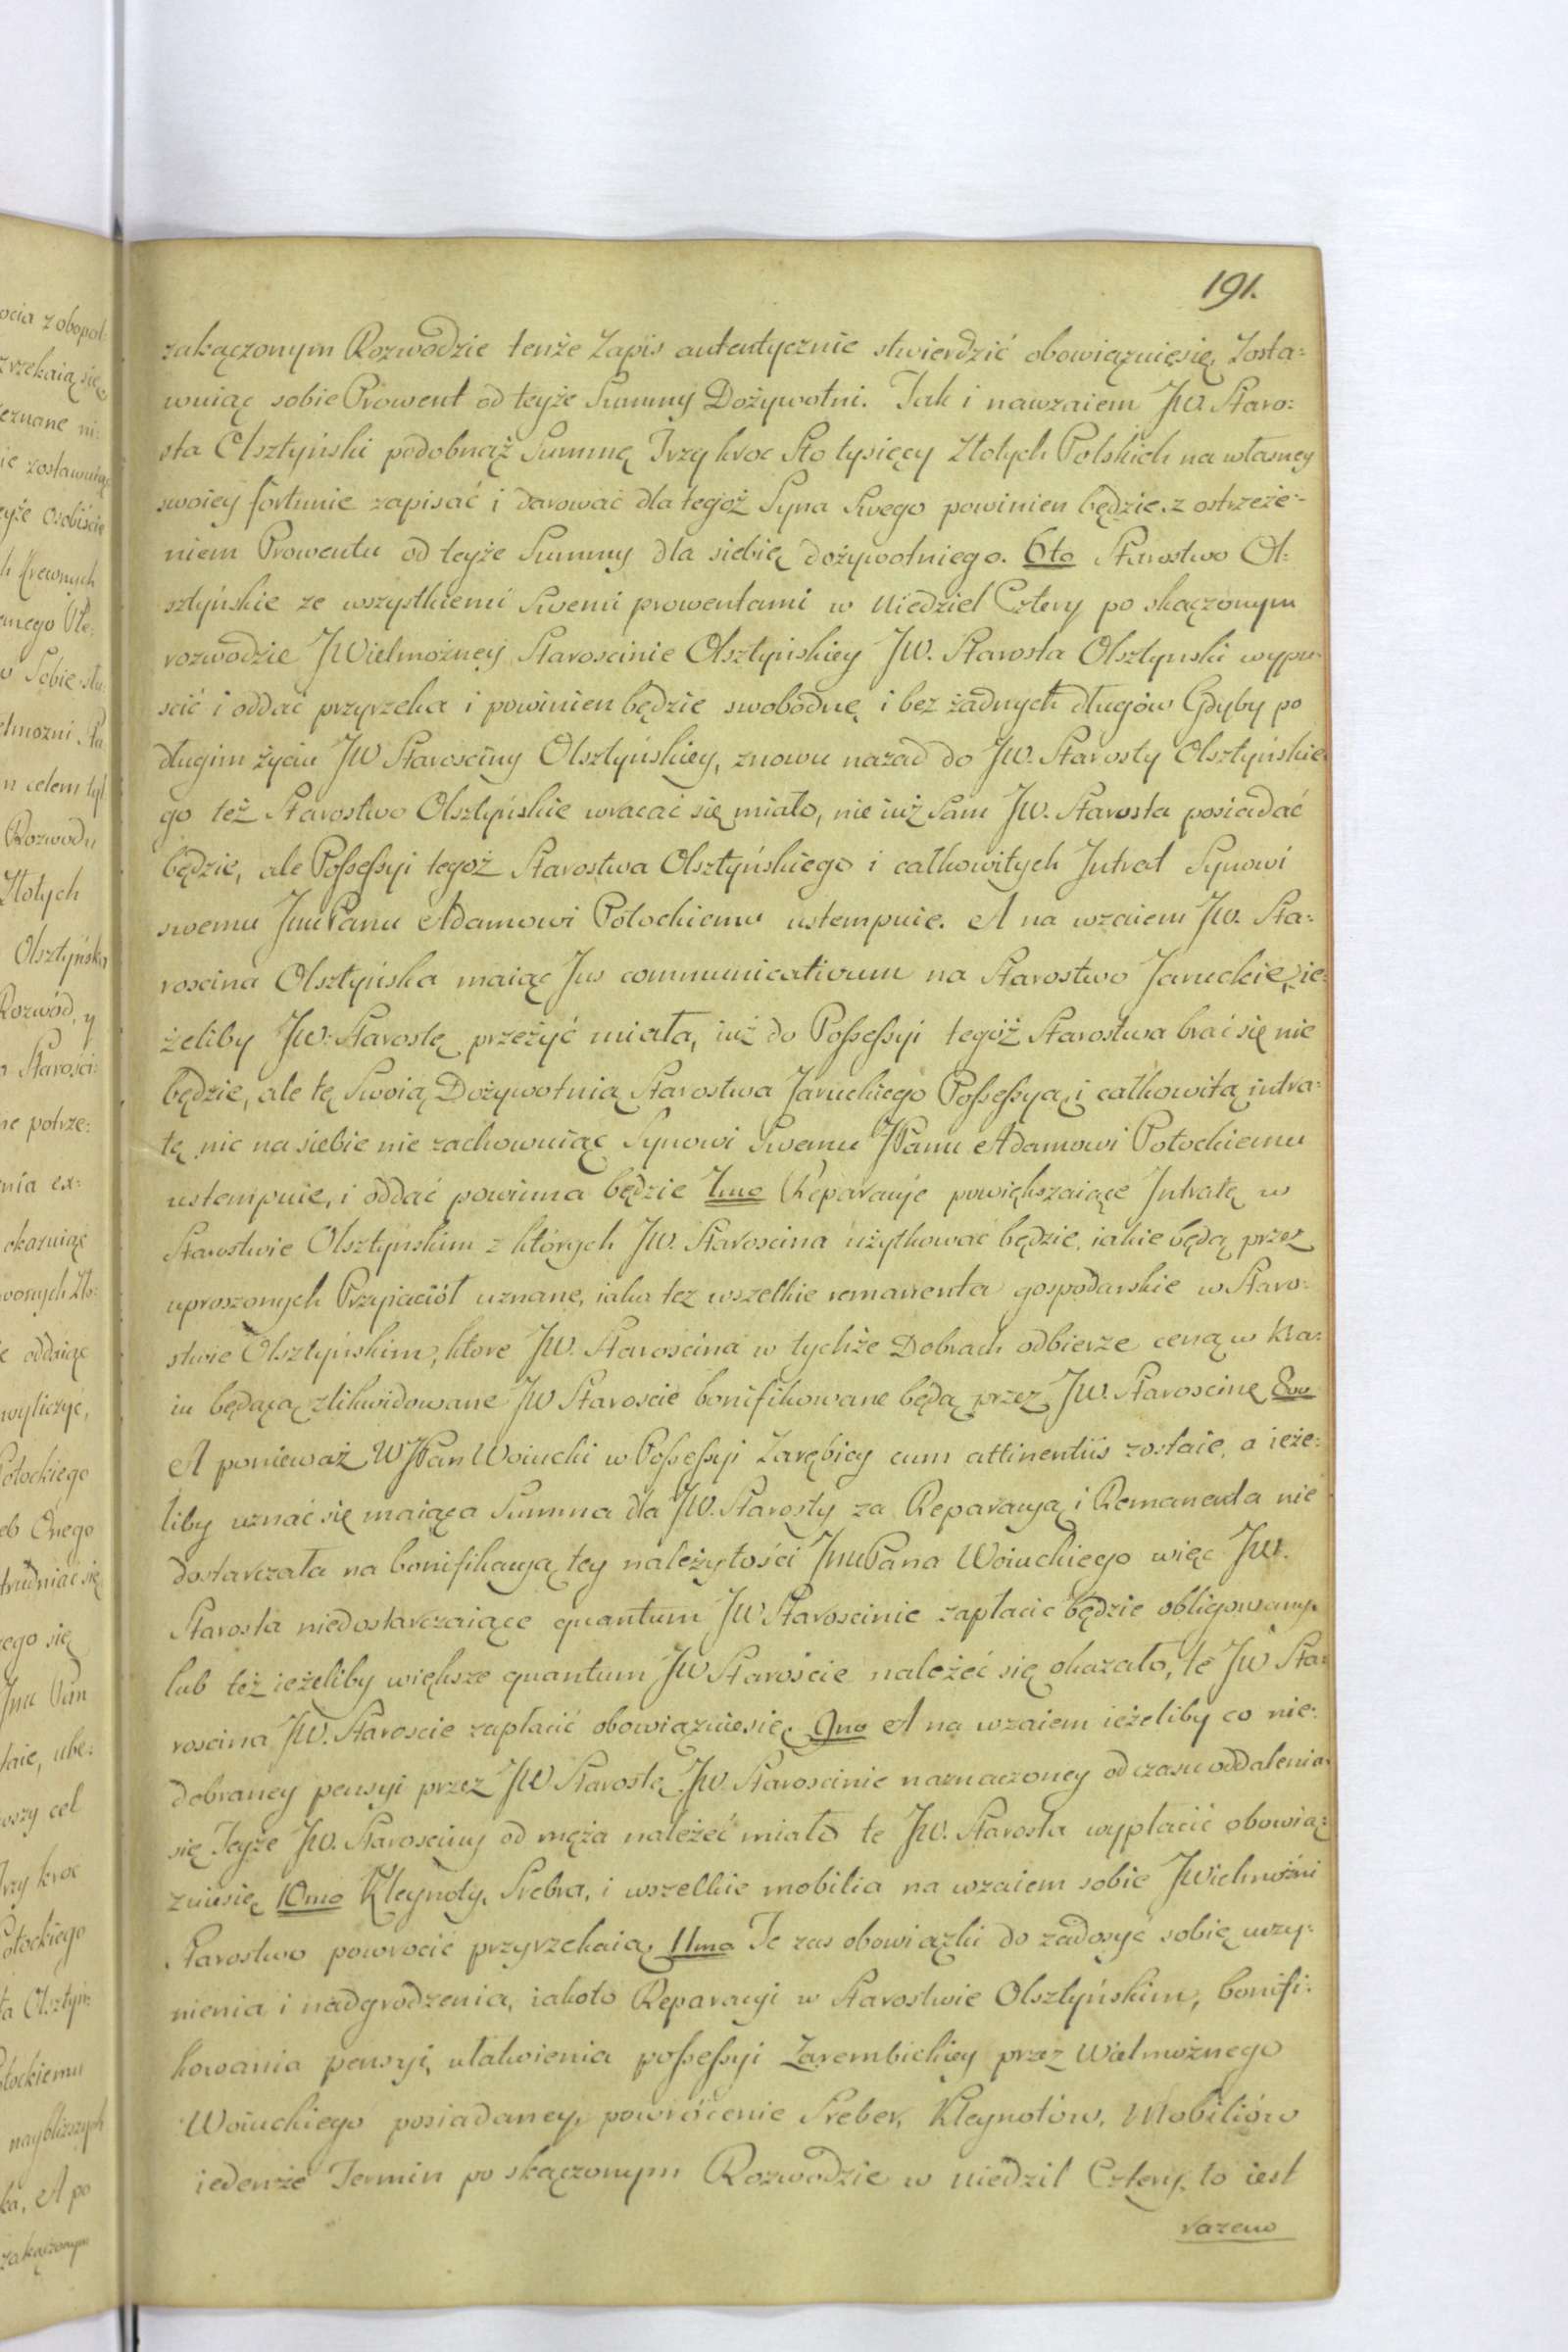 191.
zakączonym Rozwodzie tenże Zapis autentycznie stwierdzić obowiązuięsię, Zosta=
wuiąc sobie Prowent od teyże Summy Dożywotni. Tak i nawzaiem JW. Staro=
sta Olsztyński podobnąż Summę Trzy kroc Sto tysięcy Złotych Polskich na własney
swoiey fortunie zapisać i darować dla tegoż Syna Swego powinien będzie. z ostrzeże=
niem Prowentu od teyże Summy dla siebię dożywotniego. 6to Starostwo Ol=
sztyńskie ze wszystkiemi Swemi prowentami w Niedziel Cztery po skączonym
rozwodzie JWielmożney Staroscinie Olsztyńskiey JW. Starosta Olsztynski wypu=
scić i oddać przyrzeka i powinien będzie swobodnę i bez żadnych długów Gdyby po
długim życiu JW Starosciny Olsztyńskiey, znowu nazad do JW. Starosty Olsztyńskie
go też Starostwo Olsztyńskie wracać się miało, nie iuż Sam JW. Starosta posiadać
będzie, ale Possessyi tegoż Starostwa Olsztyńskiego i całkowitych Intrat Synowi
swemu JmPanu Adamowi Potockiemu ustempuie. A na wzaiem JW. Sta=
roscina Olsztyńska maiąc Jus communicativum na Starostwo Jaruckie, ie=
żeliby JW. Starostę przeżyć miała, iuż do Possessyi tegoż Starostwa brać się nie
będzie, ale tę Swoią Dożywotnią Starostwa Jaruckiego Possessyą, i całkowitą intra=
tę nic na siebie nie zachowuiąc Synowi Swemu JPanu Adamowi Potockiemu
ustempuie, i oddać powinna będzie 7mo Reparacyje powiększaiące Intratę w
Starostwie Olsztyńskim z których JW. Staroscina użytkować będzie, iakie będą przez
uproszonych Przyiaciół uznane, iako tez wszelkie remanenta gospodarskie w Staro=
stwie Olsztyńskim, które JW. Staroscina w tychże Dobrach odbierze ceną w Kra=
iu będącą zlikwidowane JW Staroscie bonifikowane będą przez JW. Staroscinę 8vo
A ponieważ WJPan Woiucki w Possessyi Zarębicy cum attinentiis zostaie, a ieże=
liby uznać się maiąca Summa dla JW. Starosty za Reparacyą i Remanenta nie
dostarczała na bonifikacyą tey należytości JmPana Woiuckiego więc JW.
Starosta niedostarczaiące quantum JW Staroscinie zapłacic będzie obligowany.
lub też ieżeliby większe quantum JW Staroście należeć się okazało, te JW Sta=
roscina JW. Staroscie zapłacić obowiązuiesię. 9no A na wzaiem ieżeliby co nie=
dobraney pensyi przez JW Starostę JW. Staroscinie naznaczoney od czasu oddalenia
się Teyże JW. Starosciny od męża należeć miało te JW. Starosta wypłacić obowią=
zuiesię 10mo Kleynoty, Srebra, i wszelkie mobilia na wzaiem sobie JWielmożni
Starostwo powrócić przyrzekaią, 11mo Te zas obowiązki do zadosyć sobię uczy=
nienia i nadgrodzenia, iakoto Reparacyi w Starostwie Olsztyńskim, bonifi=
kowania pensyi, ułatwienia possessyi Zarembickiey przez Wielmożnego
Woiuckiego posiadaney, powrócenie Sreber, Kleynotów, Mobiliów
iedenże Termin po skączonym Rozwodzie w Niedzil Cztery, to iest
razem